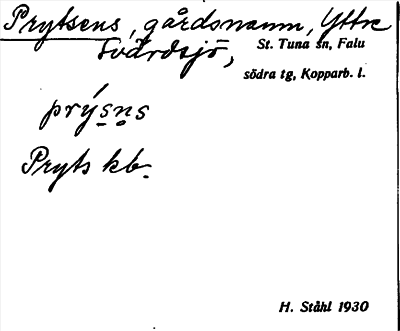 Prytsens, gårdsnamn, Yttre
Svärdsjö, St. Tuna sn, Falu
södra tg, Kopparb. l.
prýsns
Pryts kb.
H. Ståhl 1930